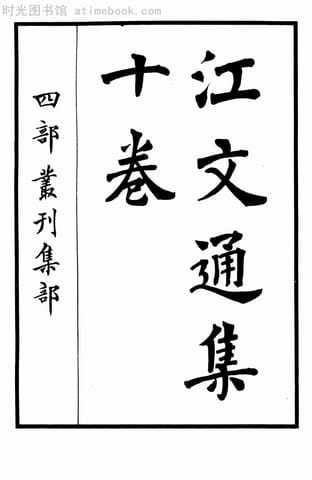 时光图书馆 atimebook.com
江文通集
十卷
四部叢刊集部